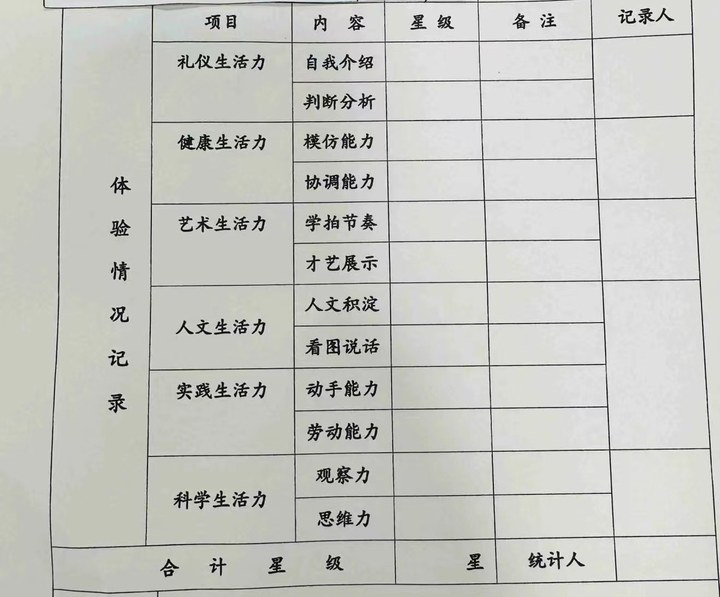 项目 内 容 星 级 备 注 记录人
体验情况记录
礼仪生活力 自我介绍
判断分析
健康生活力 模仿能力
协调能力
艺术生活力 学拍节奏
才艺展示
人文生活力 人文积淀
看图说话
实践生活力 动手能力
劳动能力
科学生活力 观察力
思维力
合 计 星 级 星 统计人